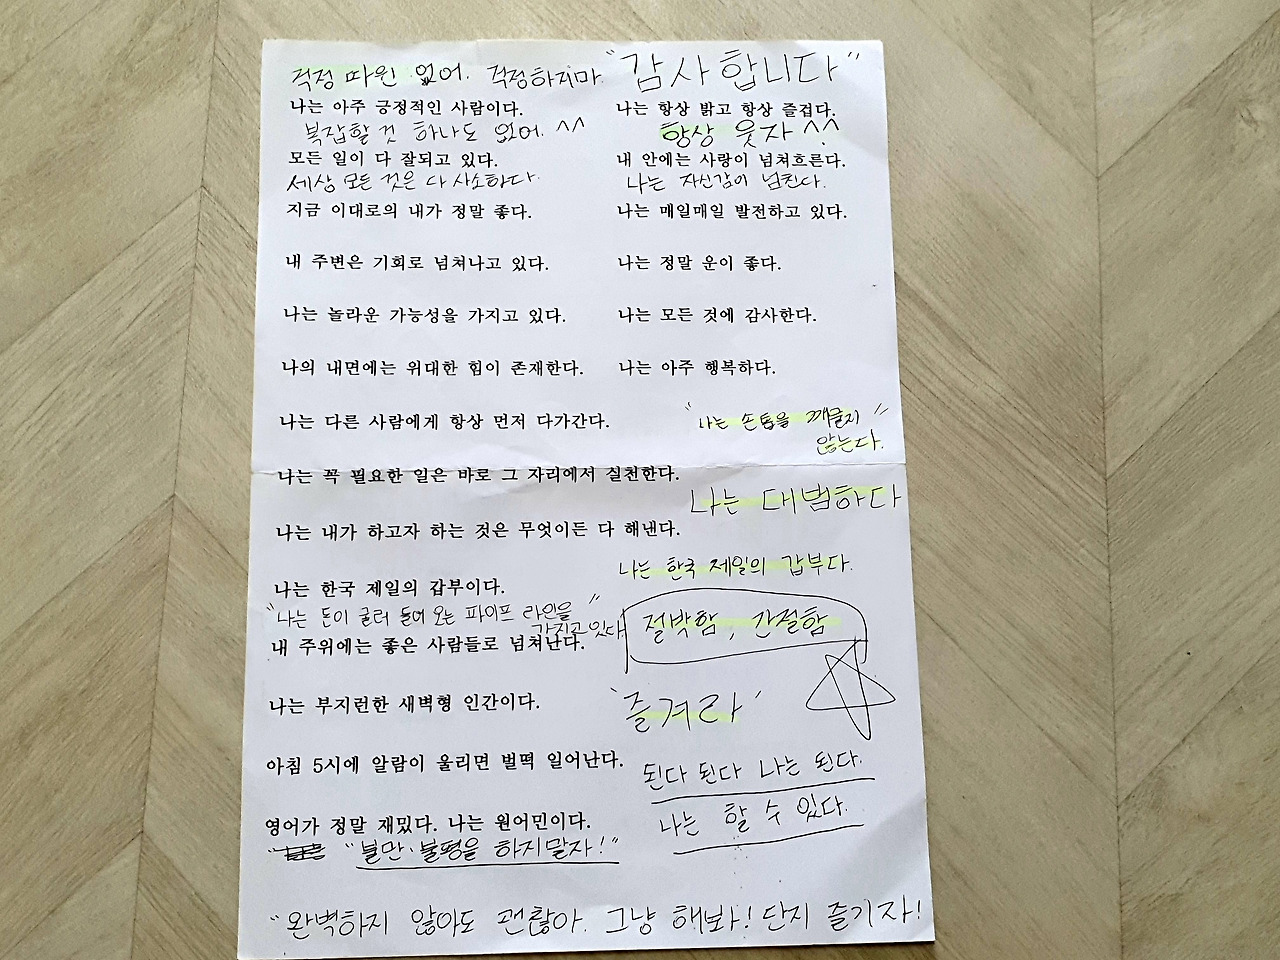 걱정 따윈 없어. 걱정하지마. "감사합니다"
나는 아주 긍정적인 사람이다.
나는 항상 밝고 항상 즐겁다.
복잡할것 하나도 없어. ^^
항상 웃자^^.
모든 일이 다 잘되고 있다.
내 안에는 사랑이 넘쳐흐른다.
세상 모든 것은 다 사소하다.
나는 자신감이 넘친다.
지금 이대로의 내가 정말 좋다.
나는 매일매일 발전하고 있다.
내 주변은 기회로 넘쳐나고 있다.
나는 정말 운이 좋다.
나는 놀라운 가능성을 가지고 있다.
나는 모든 것에 감사한다.
나의 내면에는 위대한 힘이 존재한다.
나는 아주 행복하다.
나는 다른 사람에게 항상 먼저 다가간다.
"나는 손톱을 깨물지"
않는다.
나는 꼭 필요한 일은 바로 그 자리에서 실천한다.
나는 대범하다
나는 내가 하고자 하는 것은 무엇이든 다 해낸다.
나는 한국 제일의 갑부다.
나는 한국 제일의 갑부이다.
"나는 돈이 굴러 들어 오는 파이프 라인을"
가지고 있다
절박함, 간절함
내 주위에는 좋은 사람들로 넘쳐난다.
나는 부지런한 새벽형 인간이다.
'즐겨라'
아침 5시에 알람이 울리면 벌떡 일어난다.
된다 된다 나는 된다.
나는 할 수 있다.
영어가 정말 재밌다. 나는 원어민이다.
"불만·불평을 하지말자!"
"완벽하지 않아도 괜찮아. 그냥 해봐! 단지 즐기자!